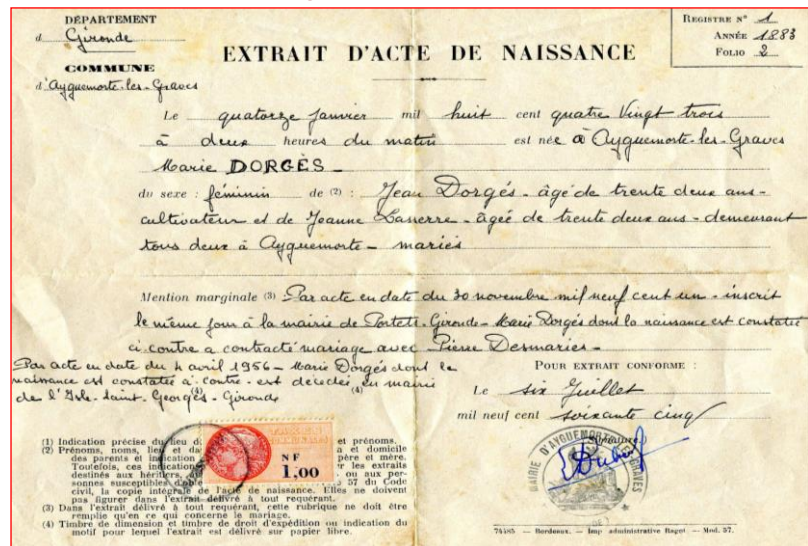 DÉPARTEMENT
d Gironde
COMMUNE
d'Ayguemorte-les-Graves
REGISTRE N° 1
ANNÉE 1883
FOLIO 2
EXTRAIT D'ACTE DE NAISSANCE
Le quatorze janvier mil huit cent quatre Vingt trois
à deux heures du matin est née à Ayguemorte-les-Graves
Marie DORGÈS -
du sexe : féminin de (2) : Jean Dorgés - âgé de trente deux ans -
cultivateur et de Jeanne Lasserre - âgée de trente deux ans - demeurant
tous deux à Ayguemorte - mariés
Mention marginale (3) Par acte en date du 30 novembre mil neuf cent un - inscrit
le même jour à la mairie de Portets - Gironde - Marie Dorgés dont la naissance est constatée
ci-contre a contracté mariage avec Pierre Desmaries -
Par acte en date du 4 avril 1956 - Marie Dorgés dont la
naissance est constatée ci-contre - est décédée en mairie
de l'Isle-Saint-Georges - Gironde (4)
POUR EXTRAIT CONFORME :
Le six Juillet
mil neuf cent soixante cinq
Signature
MAIRIE D'AYGUEMORTE GRAVES
NF
1,00
(1) Indication précise du lieu d et prénoms.
(2) Prénoms, noms, lieu et da a et domicile
des parents et indication père et mère.
Toutefois, ces indications r les extraits
destinés aux héritiers, a ou aux per-
sonnes susceptibles d'ob 57 du Code
civil, la copie intégrale de l'acte de naissance. Elles ne doivent
pas figurer dans l'extrait délivré à tout requérant.
(3) Dans l'extrait délivré à tout requérant, cette rubrique ne doit être
remplie qu'en ce qui concerne le mariage.
(4) Timbre de dimension et timbre de droit d'expédition ou indication du
motif pour lequel l'extrait est délivré sur papier libre.
74485 — Bordeaux. — Imp administrative Raget — Mod. 37.